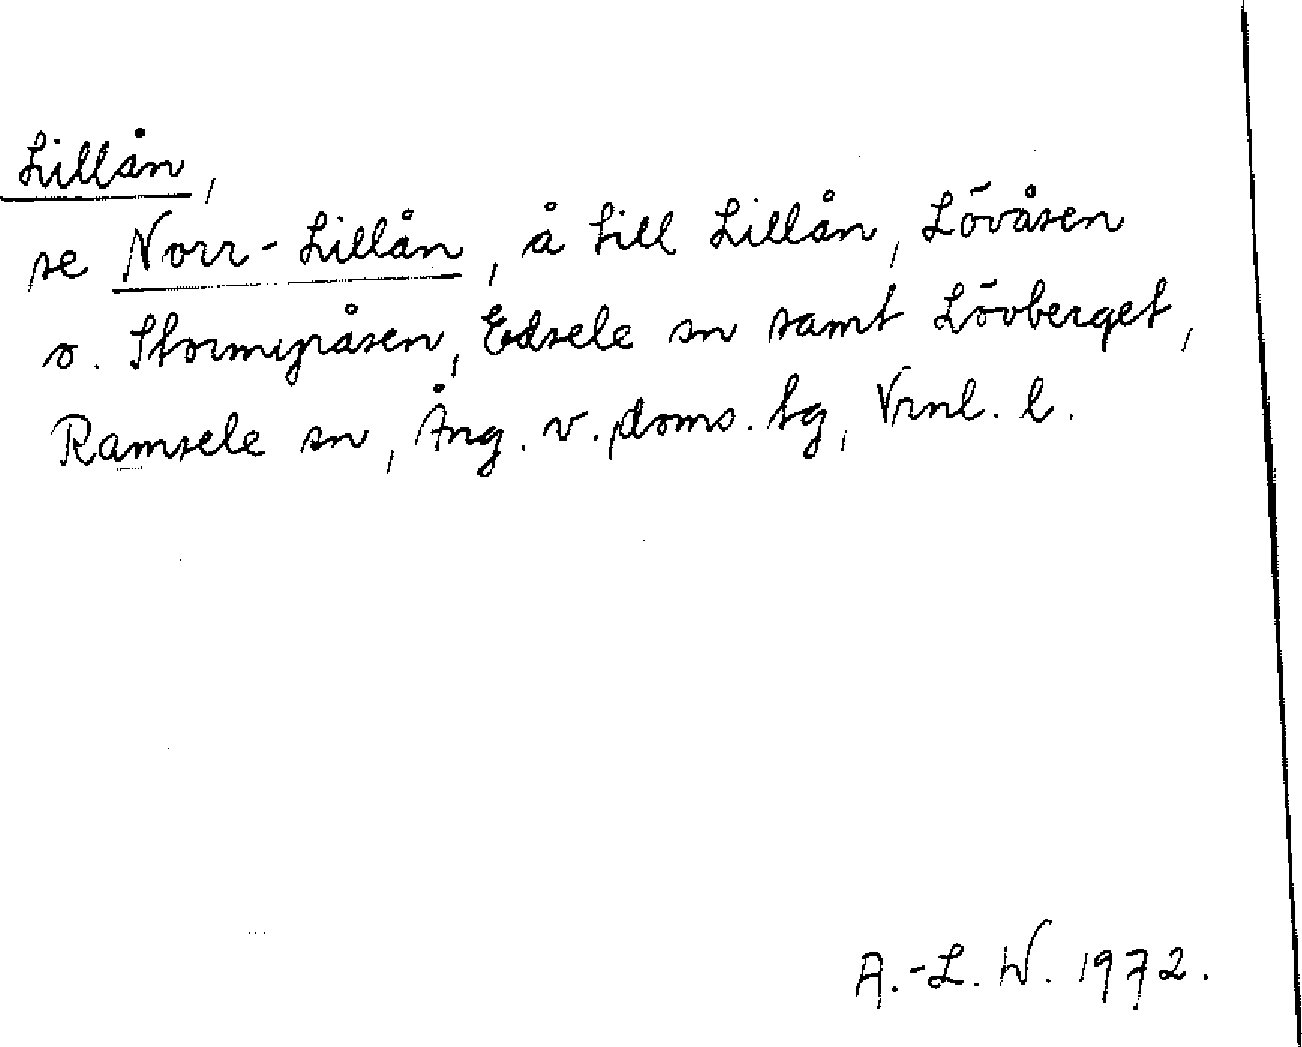 Lillån,
se Norr-Lillån, å till Lillån, Lövåsen
o. Stormyråsen, Edsele sn samt Lövberget,
Ramsele sn, Ång. v. doms. tg, Vrnl. l.
A.-L. W. 1972.